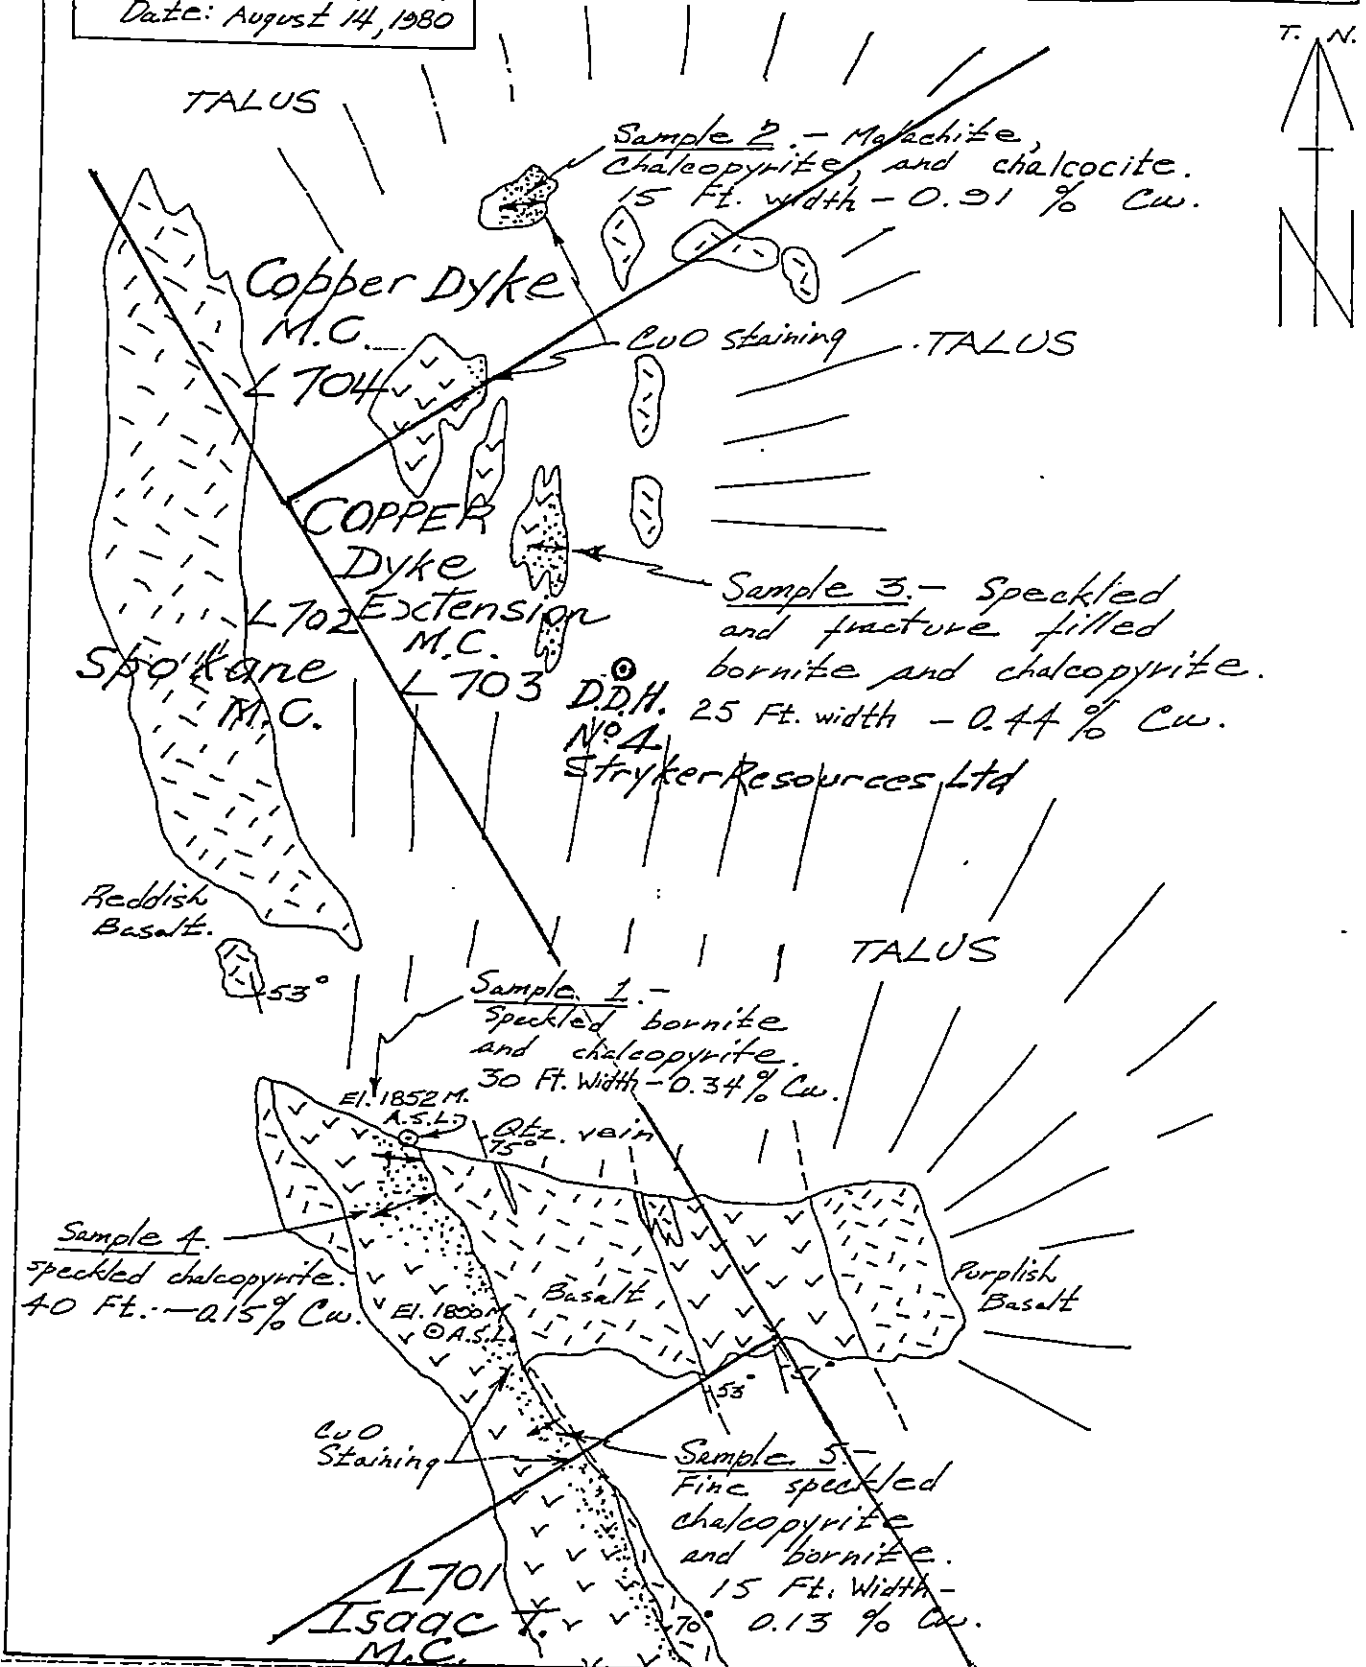 Date: August 14, 1980
T. N.
N
TALUS
Sample 2. - Malachite,
chalcopyrite, and chalcocite.
15 Ft. width - 0.91 % Cu.
Copper Dyke
M.C.
L 704
CuO staining
TALUS
COPPER
Dyke
Extension
M.C.
L 703
L 702
Spo'kane
M.C.
Sample 3. - Speckled
and fracture filled
bornite and chalcopyrite.
25 Ft. width - 0.44 % Cu.
D.D.H.
Nº 4
Stryker Resources Ltd
Reddish
Basalt.
53°
TALUS
Sample 1. -
Speckled bornite
and chalcopyrite.
30 Ft. Width - 0.34 % Cu.
El. 1852 M.
A.S.L.
Qtz. vein
75°
Sample 4.
speckled chalcopyrite.
40 Ft. - 0.15 % Cu.
El. 1800 M
A.S.L.
Basalt
Purplish
Basalt
53°
51°
CuO
Staining
Sample 5. -
Fine speckled
chalcopyrite
and bornite.
15 Ft. Width -
0.13 % Cu.
L 701
Isaac T.
M.C.
70°